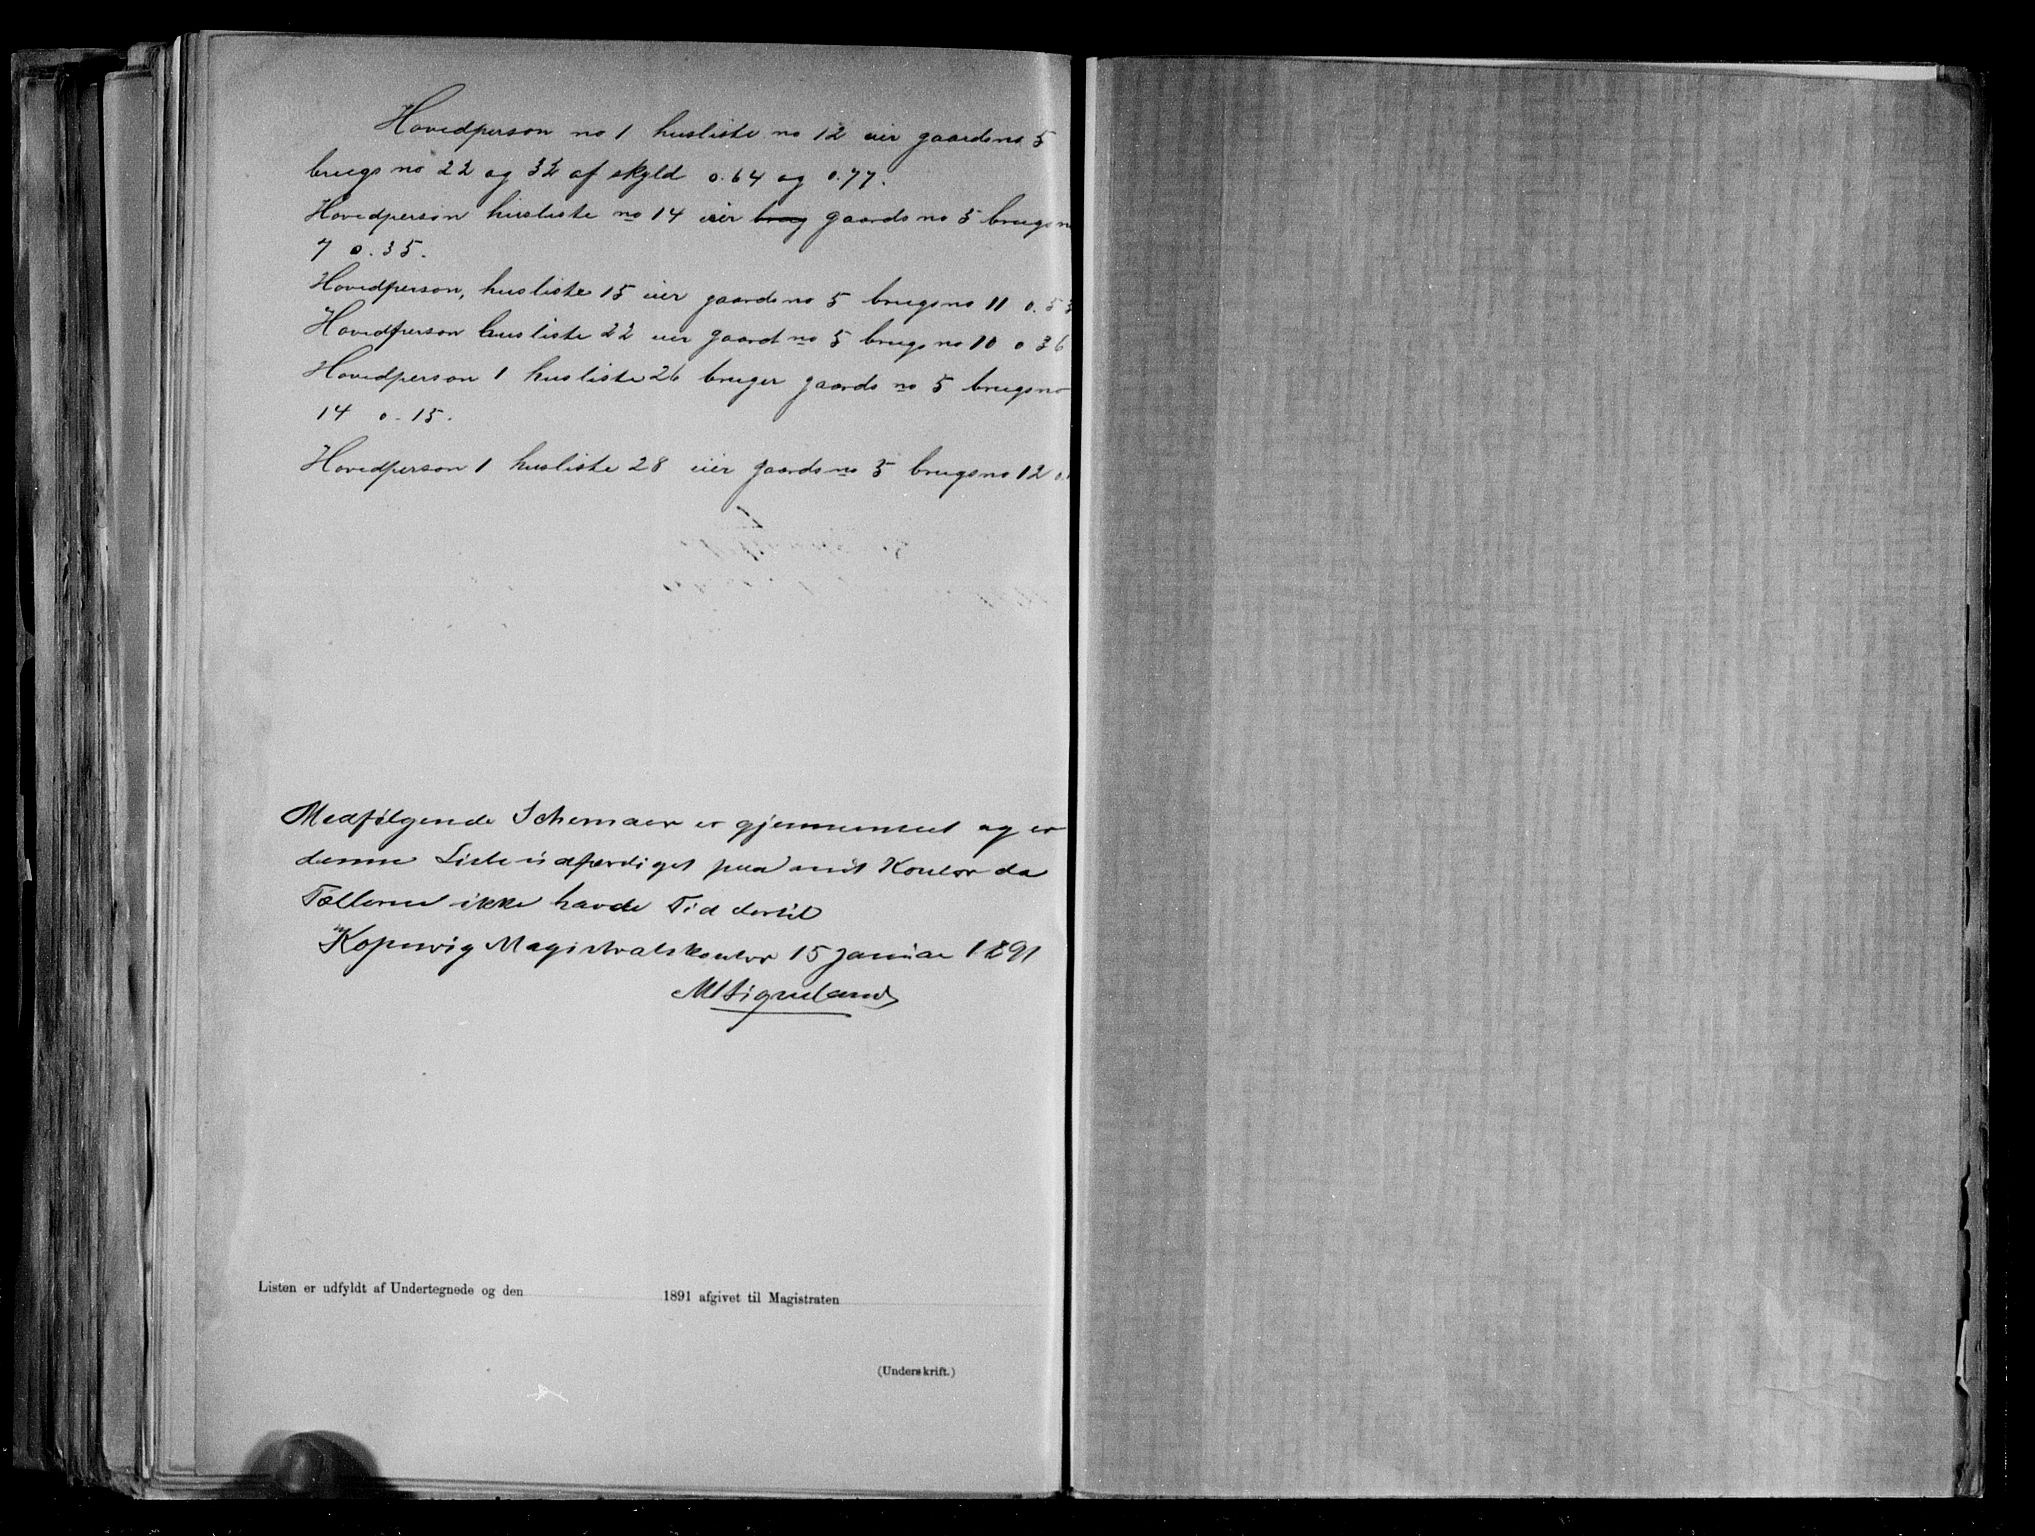 Hovedperson no 1 husliste no 12 eier gaardsno 5
brugs no 22 og 32 af skyld 0.64 og 0.77.
Hovedperson husliste no 14 eier brug gaards no 5 brugs n
7 0.35.
Hovedperson, husliste 15 eier gaardsno 5 brugsno 11 0.53
Hovedperson husliste 22 eier gaard no 5 brugs no 10 0 36
Hovedperson 1 husliste 26 bruger gaards no 5 brugsno
14 0.15.
Hovedperson 1 husliste 28 eier gaardsno 5 brugsno 12 0.
Medfølgende Schemaer er gjennemseet og er
denne Liste udfærdiget paa mit Kontor da
Tællerne ikke havde Tid dertil
Kopervig Magistratskontor 15 Januar 1891
Listen er udfyldt af Undertegnede og den 1891 afgivet til Magistraten
(Underskrift.)